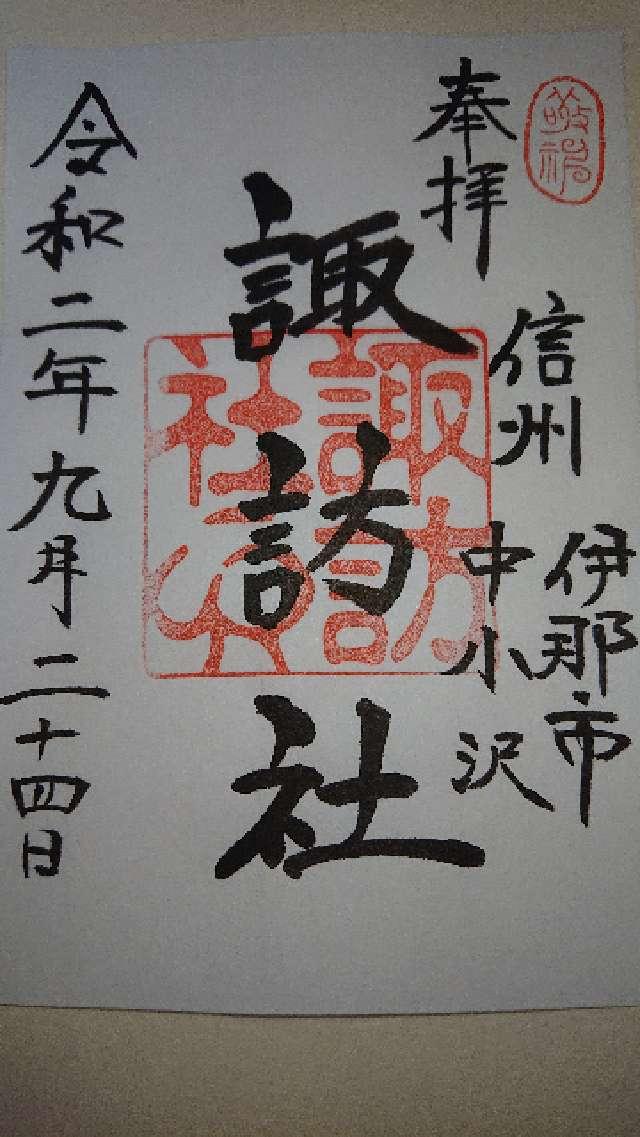 敬神
奉拝
信州
伊那市
中小沢
諏訪社
諏訪社
令和二年九月二十四日